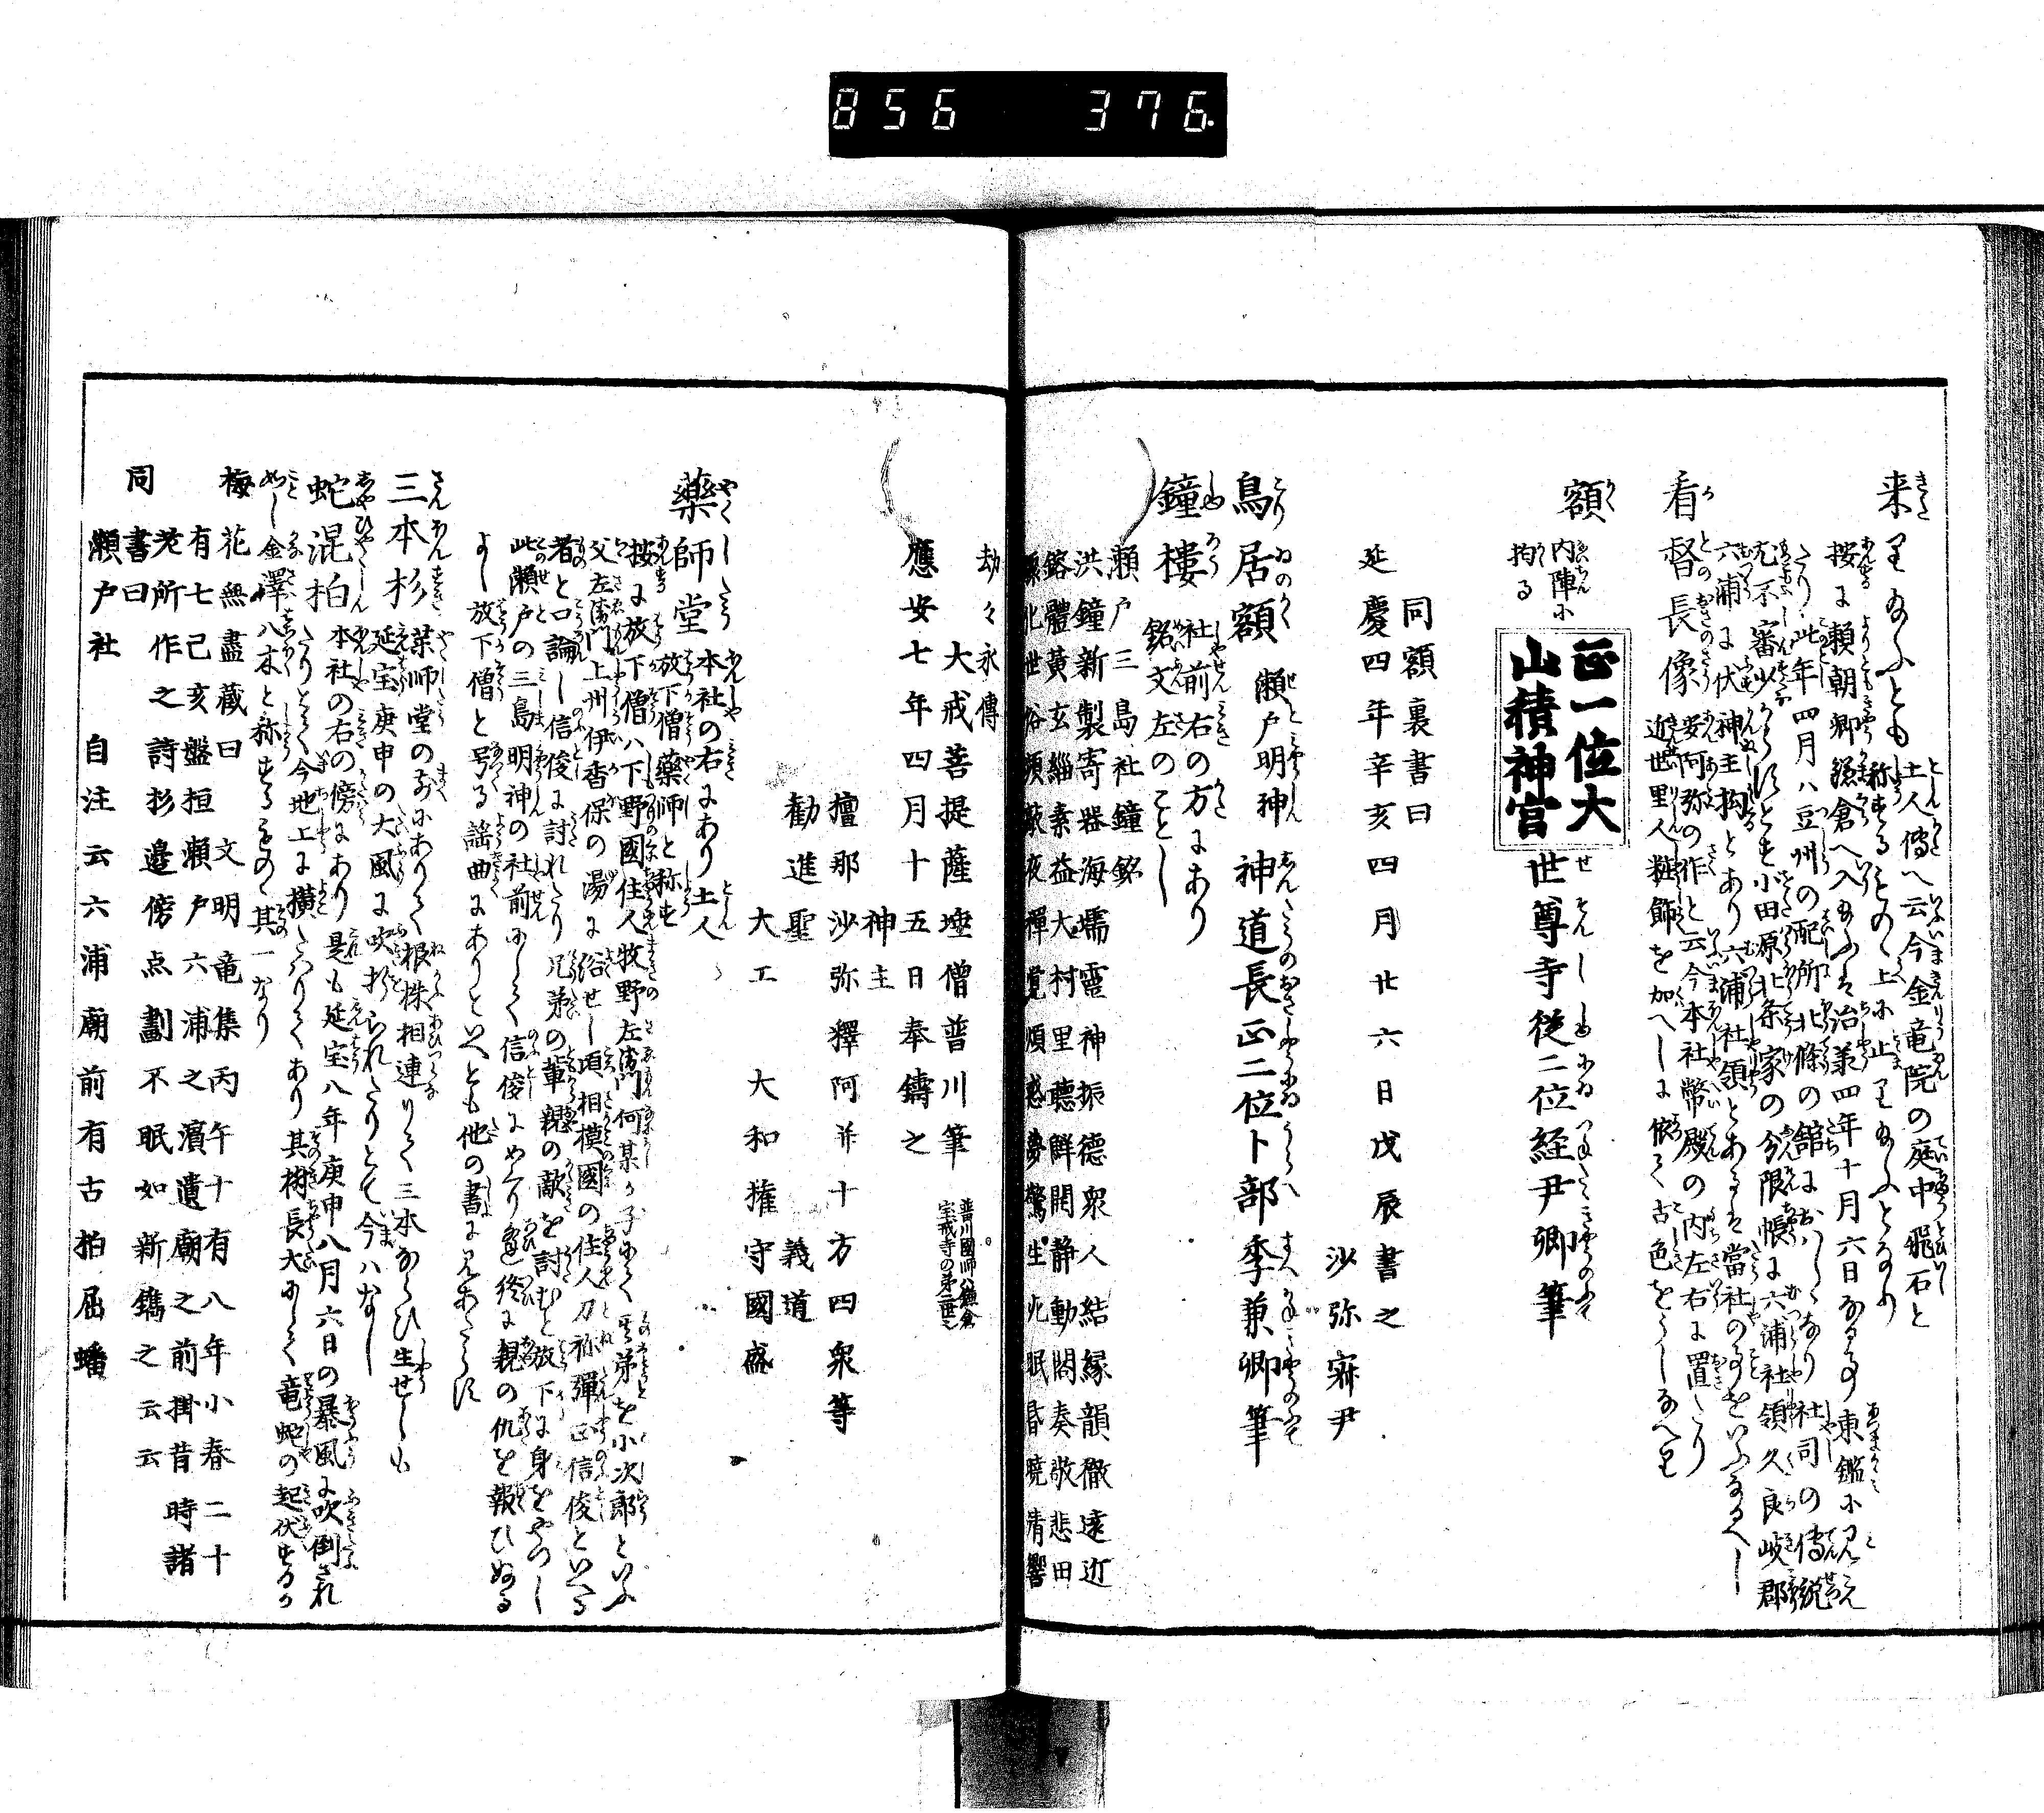 856 376.
来り給ふとも称するもの
土人傳へ云今金竜院の庭中飛石と
上に止り給ふとなり
按に頼朝卿鎌倉へ入給ふは治承四年十月六日なる事東鑑に見え
たり此年四月は豆州の配所北條の舘におはしゝなり社司の傳説
尤不審少からずとも小田原北条家の分限帳に六浦社領久良岐郡
六浦に伏神主松とあり六浦社領とあるは當社の事をいふなるべし
看督長像
安阿弥の作と云今本社幣殿の内左右に置たり
近世里人粧飾を加へしに依て古色をうしなへり
額
内陣に
掲る
正一位大
山積神宮
世尊寺従二位経尹卿筆
同額裏書曰
延慶四年辛亥四月廿六日戊辰書之
沙弥寂尹
鳥居額 瀬戸明神 神道長正二位卜部季兼卿筆
鐘樓 社前右の方にあり
銘文左のことし
瀬戸三島社鐘銘
洪鐘新製寄器海壖靈神振德衆人結縁韻徹遠近
鎔體黄玄緇素益大村里聽鮮閑静動閣奏敬悲田
世俗頌歌夜禅覚煩惑夢驚生死眠昏曉清響
劫々永傳
大戒菩提薩埵僧普川筆
普川國師ハ鎌倉
宝戒寺の第二世也
應安七年四月十五日奉鑄之
神主
檀那沙弥釋阿并十方四衆等
勧進聖 義道
大工 大和権守國盛
藥師堂 本社の右にあり土人
放下僧藥師と称す
按に放下僧ハ下野國住人牧野左衛門何某か子にて其弟を小次郎といふ
父左衛門上州伊香保の湯に浴せし頃相模國の住人刀祢彈正信俊といへる
者と口論し信俊に討れたり兄弟の輩親の敵を討むと放下に身をやつし
此瀬戸の三島明神の社前にして信俊にめくり逢終に親の仇を報ひぬる
よし放下僧と号る謡曲にありといへとも他の書に見あたらす
三本杉 薬師堂の前にありて根株相連りて三本ならひ生せしも
延宝庚申の大風に吹折られたりとて今ハなし
蛇混柏 本社の右の傍にあり是も延宝八年庚申八月六日の暴風に吹倒され
たりとて今地上に横たはりてあり其樹長大にして竜蛇の起伏するか
如し金澤八木と称するもの其一なり
梅花無盡藏曰 文明竜集丙午十有八年小春二十
有七己亥盤桓瀬戸六浦之濱遺廟之前掛昔時諸
老所作之詩杉邉傍点劃不眠如新鐫之云云
同書曰
瀬戸社 自注云六浦廟前有古柏屈蟠